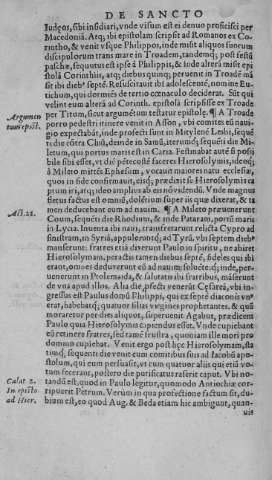 DE SANCTO
Iudæos, sibi insidiari, vnde visum est ei denuo proficisci per
Macedoniā. Atq; ibi epistolam scripsit ad Romanos ex Co-
rintho, & venit vsq; Philippos, inde misit aliquos suorum
discipulorum trans mare in Troadem, tandemq; post festū
paschæ, sequutus est ipse à Philippis, & inde alterā misit epi
stolā Corinthiis, atq; diebus quinq; peruenit in Troadē mā
sit ibi diebus septē. Resuscitauit ibi adolescentē, nomine Eu
tichium, qui dormiens de tertio coenaculo deciderat. Sit qui
velint eum alterā ad Corinth. epistolā scripsisse ex Troade
Argumen
tum epist.
per Titum, sicut argumētum testatur epistolę. ¶ A Troade
porro pedestri itinere venit in Asson, vbi comites eū naui-
gio expectabāt, inde profecti sunt in Mitylenē Lesbi, sequē
ti die cōtra Chiū, dein in Samū, iterumq; sequēti die Mi-
letum, qui portus maris est in Caria. Festinabat autē si possi
bile sibi esset, vt diē pētecostē faceret Hierosolymis, ideoq;
à Mileto mittēs Ephesum, vocauit maiores natu ecclesiæ,
quos in fide confirmauit, eisq; prædixit se Hierosolymis ca
ptum iri, atq; ideo amplius ab eis nō vidēdū. Vnde magnus
fletus factus est omniū, dolētium super iis quæ dixerat, & ta
Act. 21.
men deducebant eum ad nauem. ¶ A Mileto præuenerunt
Coum, sequēti die Rhodum, & inde Pataram, portū maris
in Lycia. Inuenta ibi naui, transfretarunt relicta Cypro ad
sinistram, in Syriā, appulerūtq; ad Tyrū. vbi septem diebus
manserunt: fratres etiā dixerunt Paulo in spiritu, ne abiret
Hierosolymam, peractis tamen diebus septē, fideles qui ibi
erant, omnes deduxerunt eū ad nauim solutē, inde, per-
uenerunt in Ptolemaida, & salutatis ibi fratribus, māserūt
de vna apud illos. Alia die profecti venerūt Cęsareā, vbi in-
gressus est Paulus domū Philippi, qui ex septē diaconis vnus
erat, habebatq; quatuor filias virgines prophetantes. & quū
moraretur per dies aliquot, superuenit Agabus, prædicens
Paulo quia Hierosolymis capiendus esset. Vnde cupiebant
eū retinere fratres, sed rame frustra, quoniam ille mori pro
domino cupiebat. Venit ergo post hęc Hierosolymam, sta
timq; sequenti die venit cum comitibus suis ad Iacobū apo-
stolum, qui cum persuasit, vt cum quatuor aliis qui eiū vo-
tum faciebant, postero die purificatus raserit caput. Vbi no-
Galat. 2.
tandū est, quod in Paulo legitur, quomodo Antiochiæ cor-
In episto
ripuerit Petrum. Verum in qua profectione factum sit, du-
ad Hier.
bium est, eo quod Aug. & Beda etiam hic ambigunt, quan-
uis